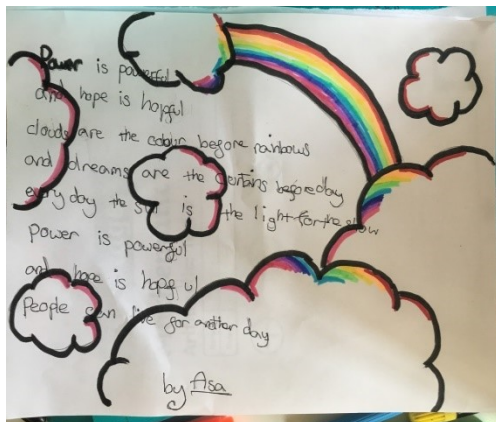 Power is powerful
and hope is hopful
clouds are the before rainbows
and dreams are the before day
every day the is the light for the
Power is powerful
and hope is hopeful
People can live for another day
by Asa